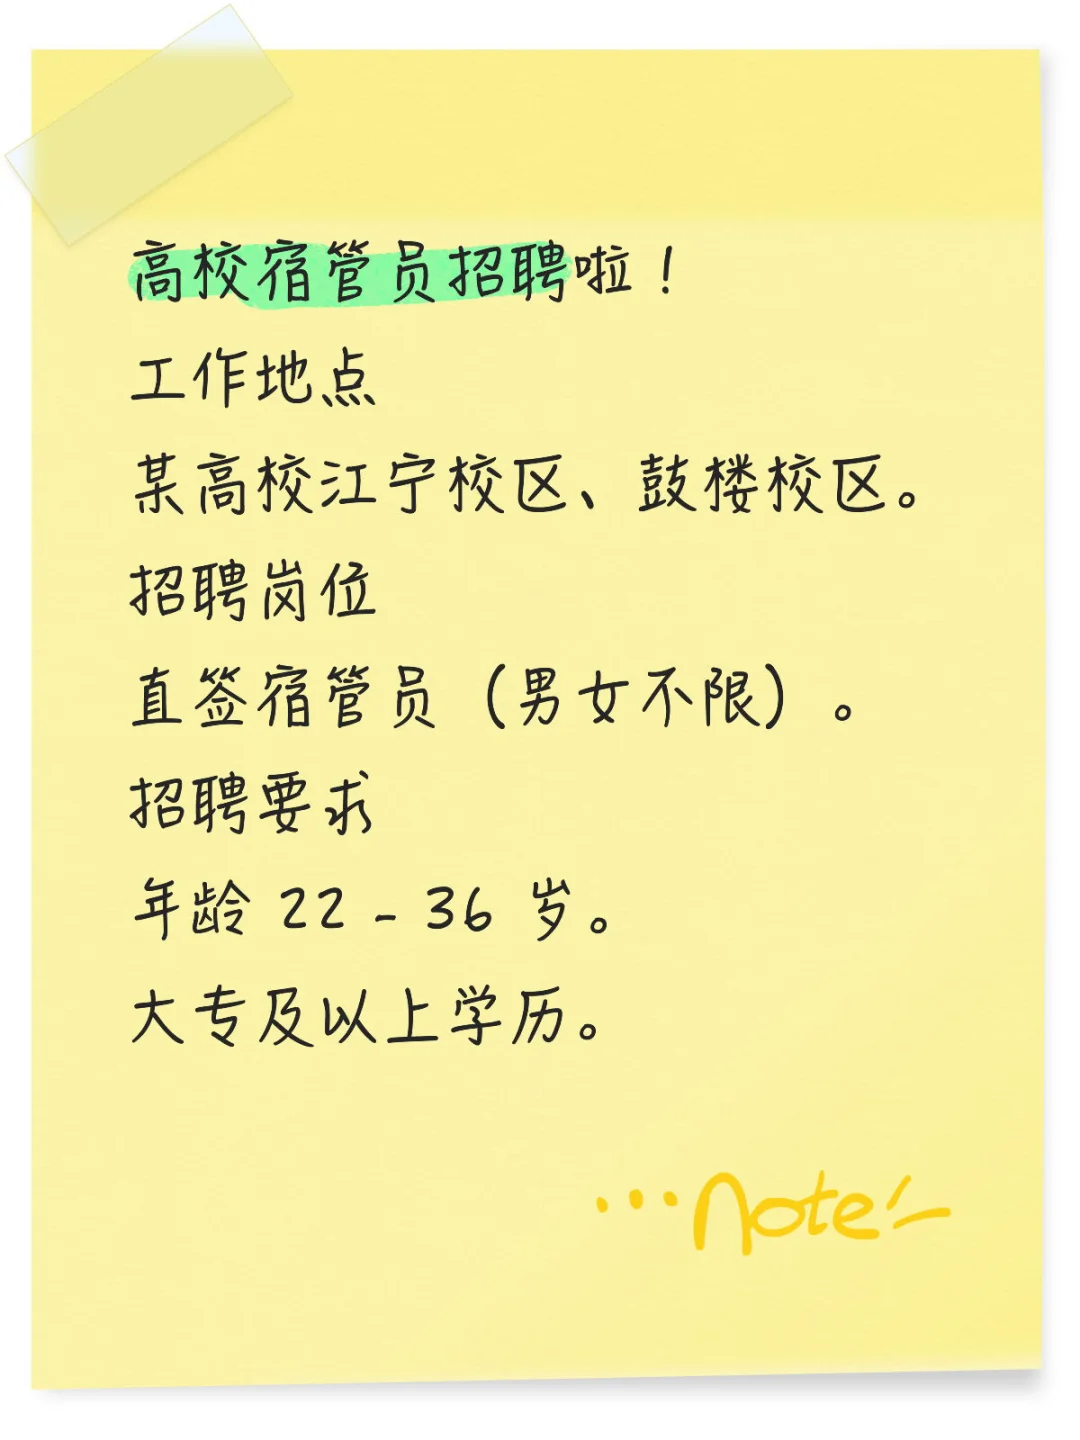 高校宿管员招聘啦！
工作地点
某高校江宁校区、鼓楼校区。
招聘岗位
直签宿管员（男女不限）。
招聘要求
年龄 22 - 36 岁。
大专及以上学历。
...note